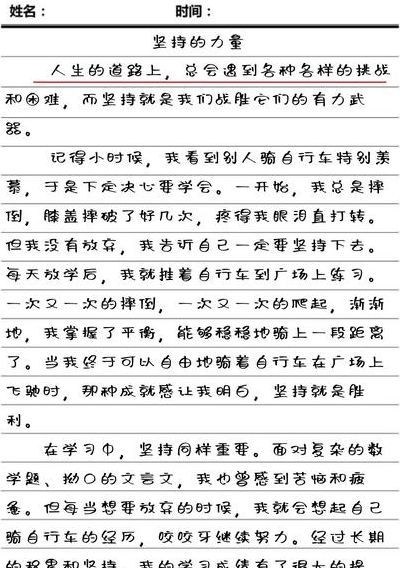 姓名：　时间：
坚持的力量
人生的道路上，总会遇到各种各样的挑战
和困难，而坚持就是我们战胜它们的有力武
器。
记得小时候，我看到别人骑自行车特别羡
慕，于是下定决心要学会。一开始，我总是摔
倒，膝盖摔破了好几次，疼得我眼泪直打转。
但我没有放弃，我告诉自己一定要坚持下去。
每天放学后，我就推着自行车到广场上练习。
一次又一次的摔倒，一次又一次的爬起，渐渐
地，我掌握了平衡，能够稳稳地骑上一段距离
了。当我终于可以自由地骑着自行车在广场上
飞驰时，那种成就感让我明白，坚持就是胜
利。
在学习中，坚持同样重要。面对复杂的数
学题、拗口的文言文，我也曾感到苦恼和疲
惫。但每当想要放弃的时候，我就会想起自己
骑自行车的经历，咬咬牙继续努力。经过长期
的积累和坚持，我的学习成绩有了很大的提